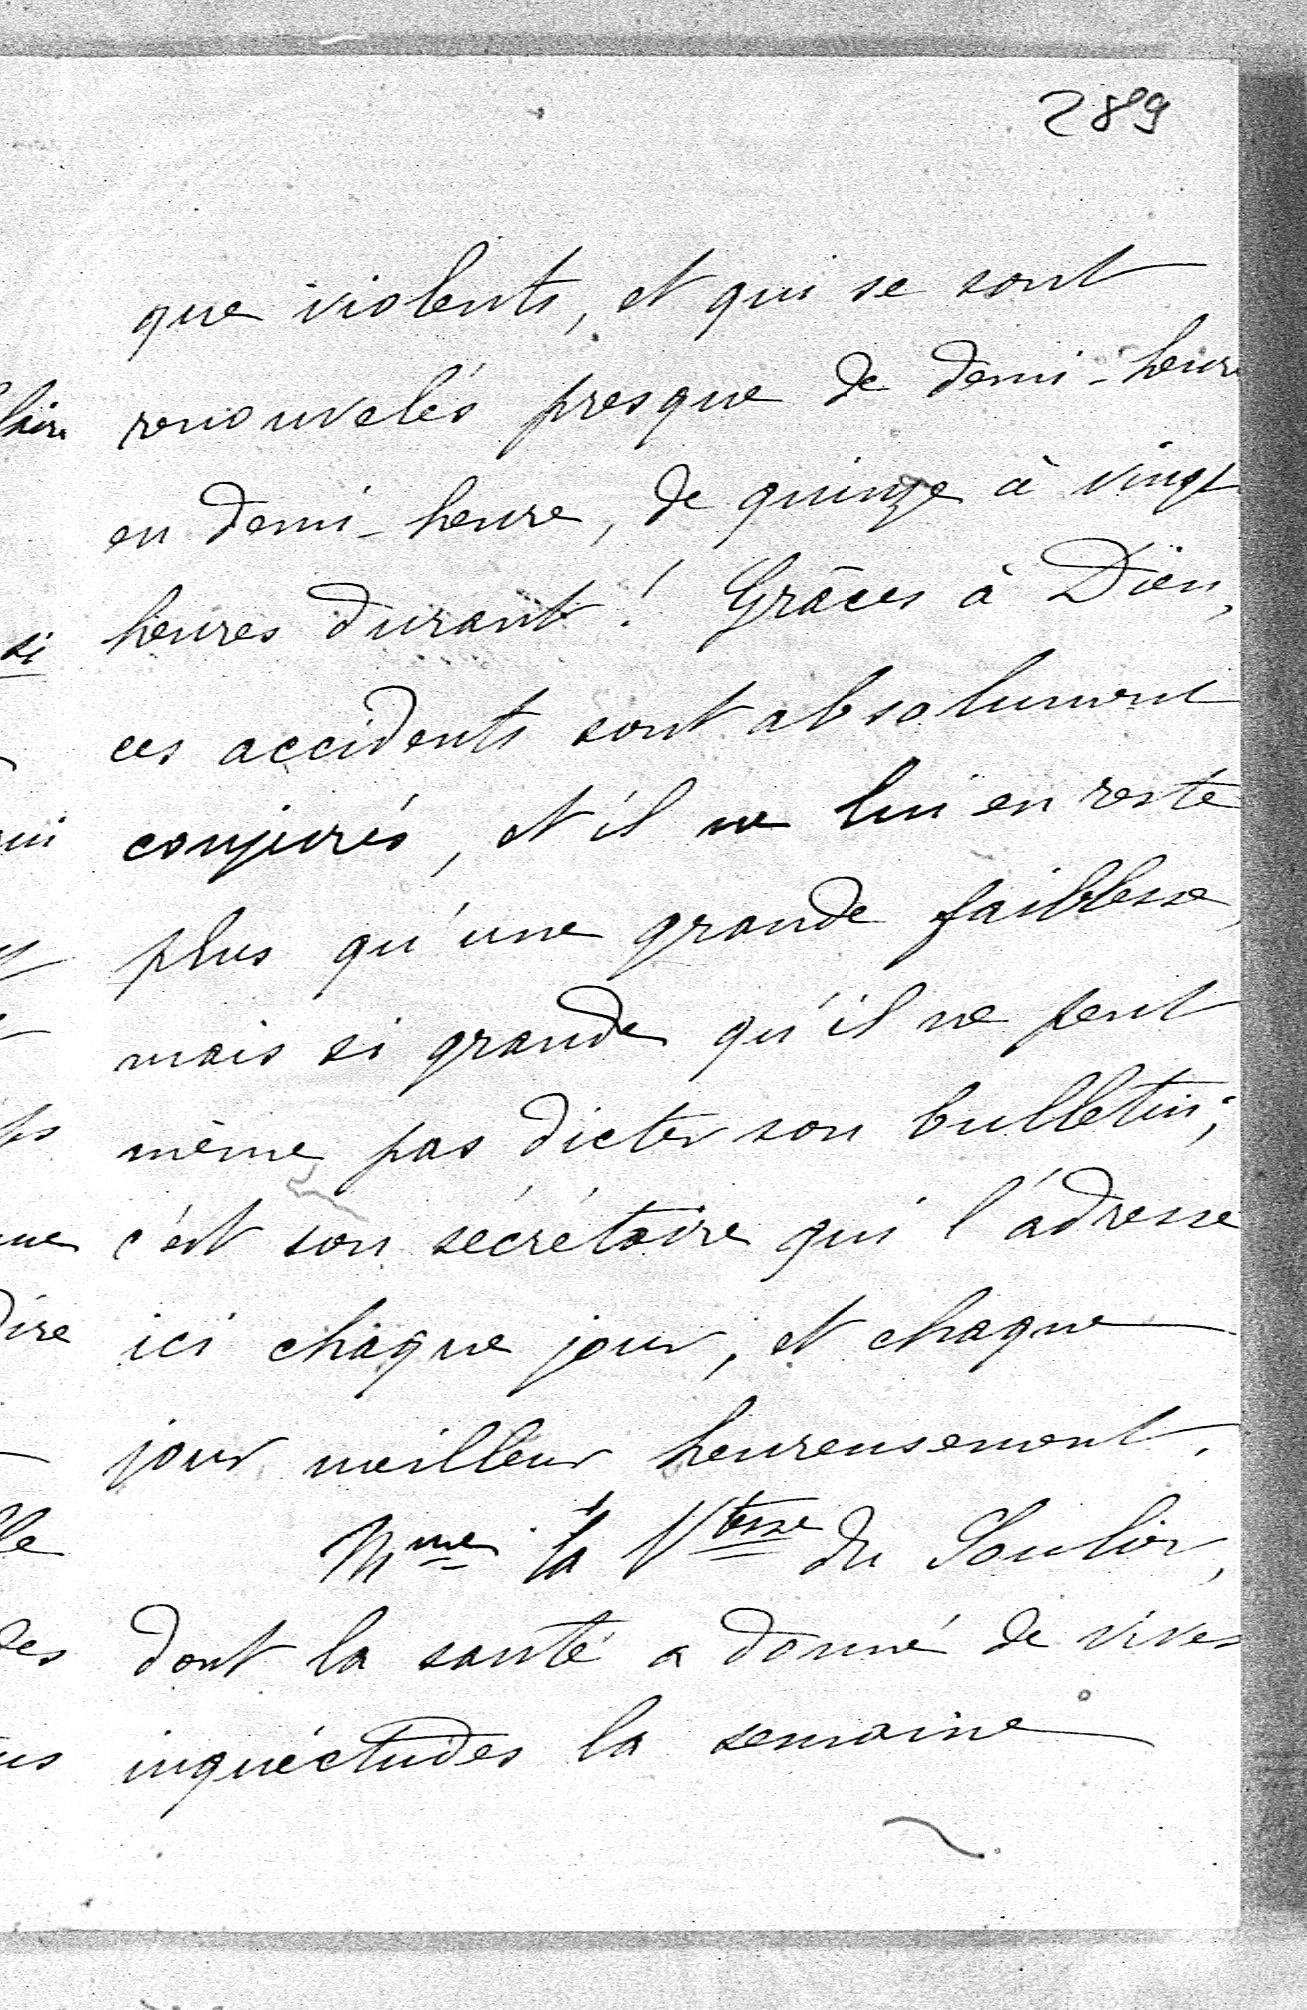 289
que violents, et qui se sont
renouvelés presque de demi-heure
en demi-heure, de quinze à vingt
heures durant! Grâces à Dieu,
ces accidents sont absolument
conjurés, et il ne lui en reste
plus qu'une grande faiblesse,
mais si grande qu'il ne peut
même pas dicter son bulletin;
c'est son secrétaire qui l'adresse
ici chaque jour, et chaque
jour meilleur heureusement.
Mme la Vtesse du Soulier,
dont la santé a donné de vives
inquiétudes la semaine